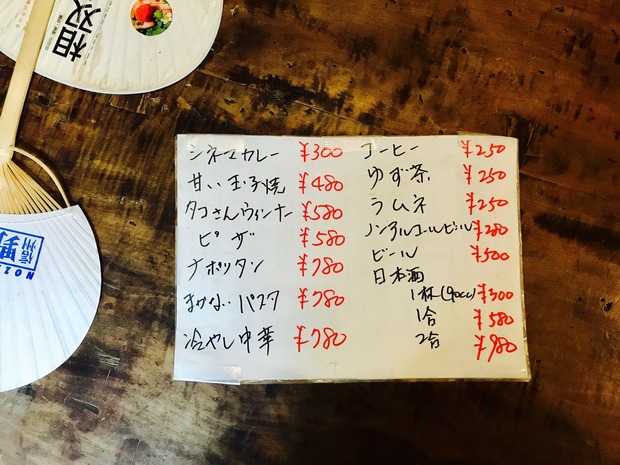 相双
信州
野
NOZ
シネマカレー ¥300
甘い玉子焼 ¥480
タコさんウィンナー ¥580
ピザ ¥580
ナポリタン ¥780
まかないパスタ ¥780
冷やし中華 ¥780
コーヒー ¥250
ゆず茶 ¥250
ラムネ ¥250
ノンアルコールビール ¥280
ビール ¥500
日本酒
1杯(90cc) ¥300
1合 ¥580
2合 ¥980